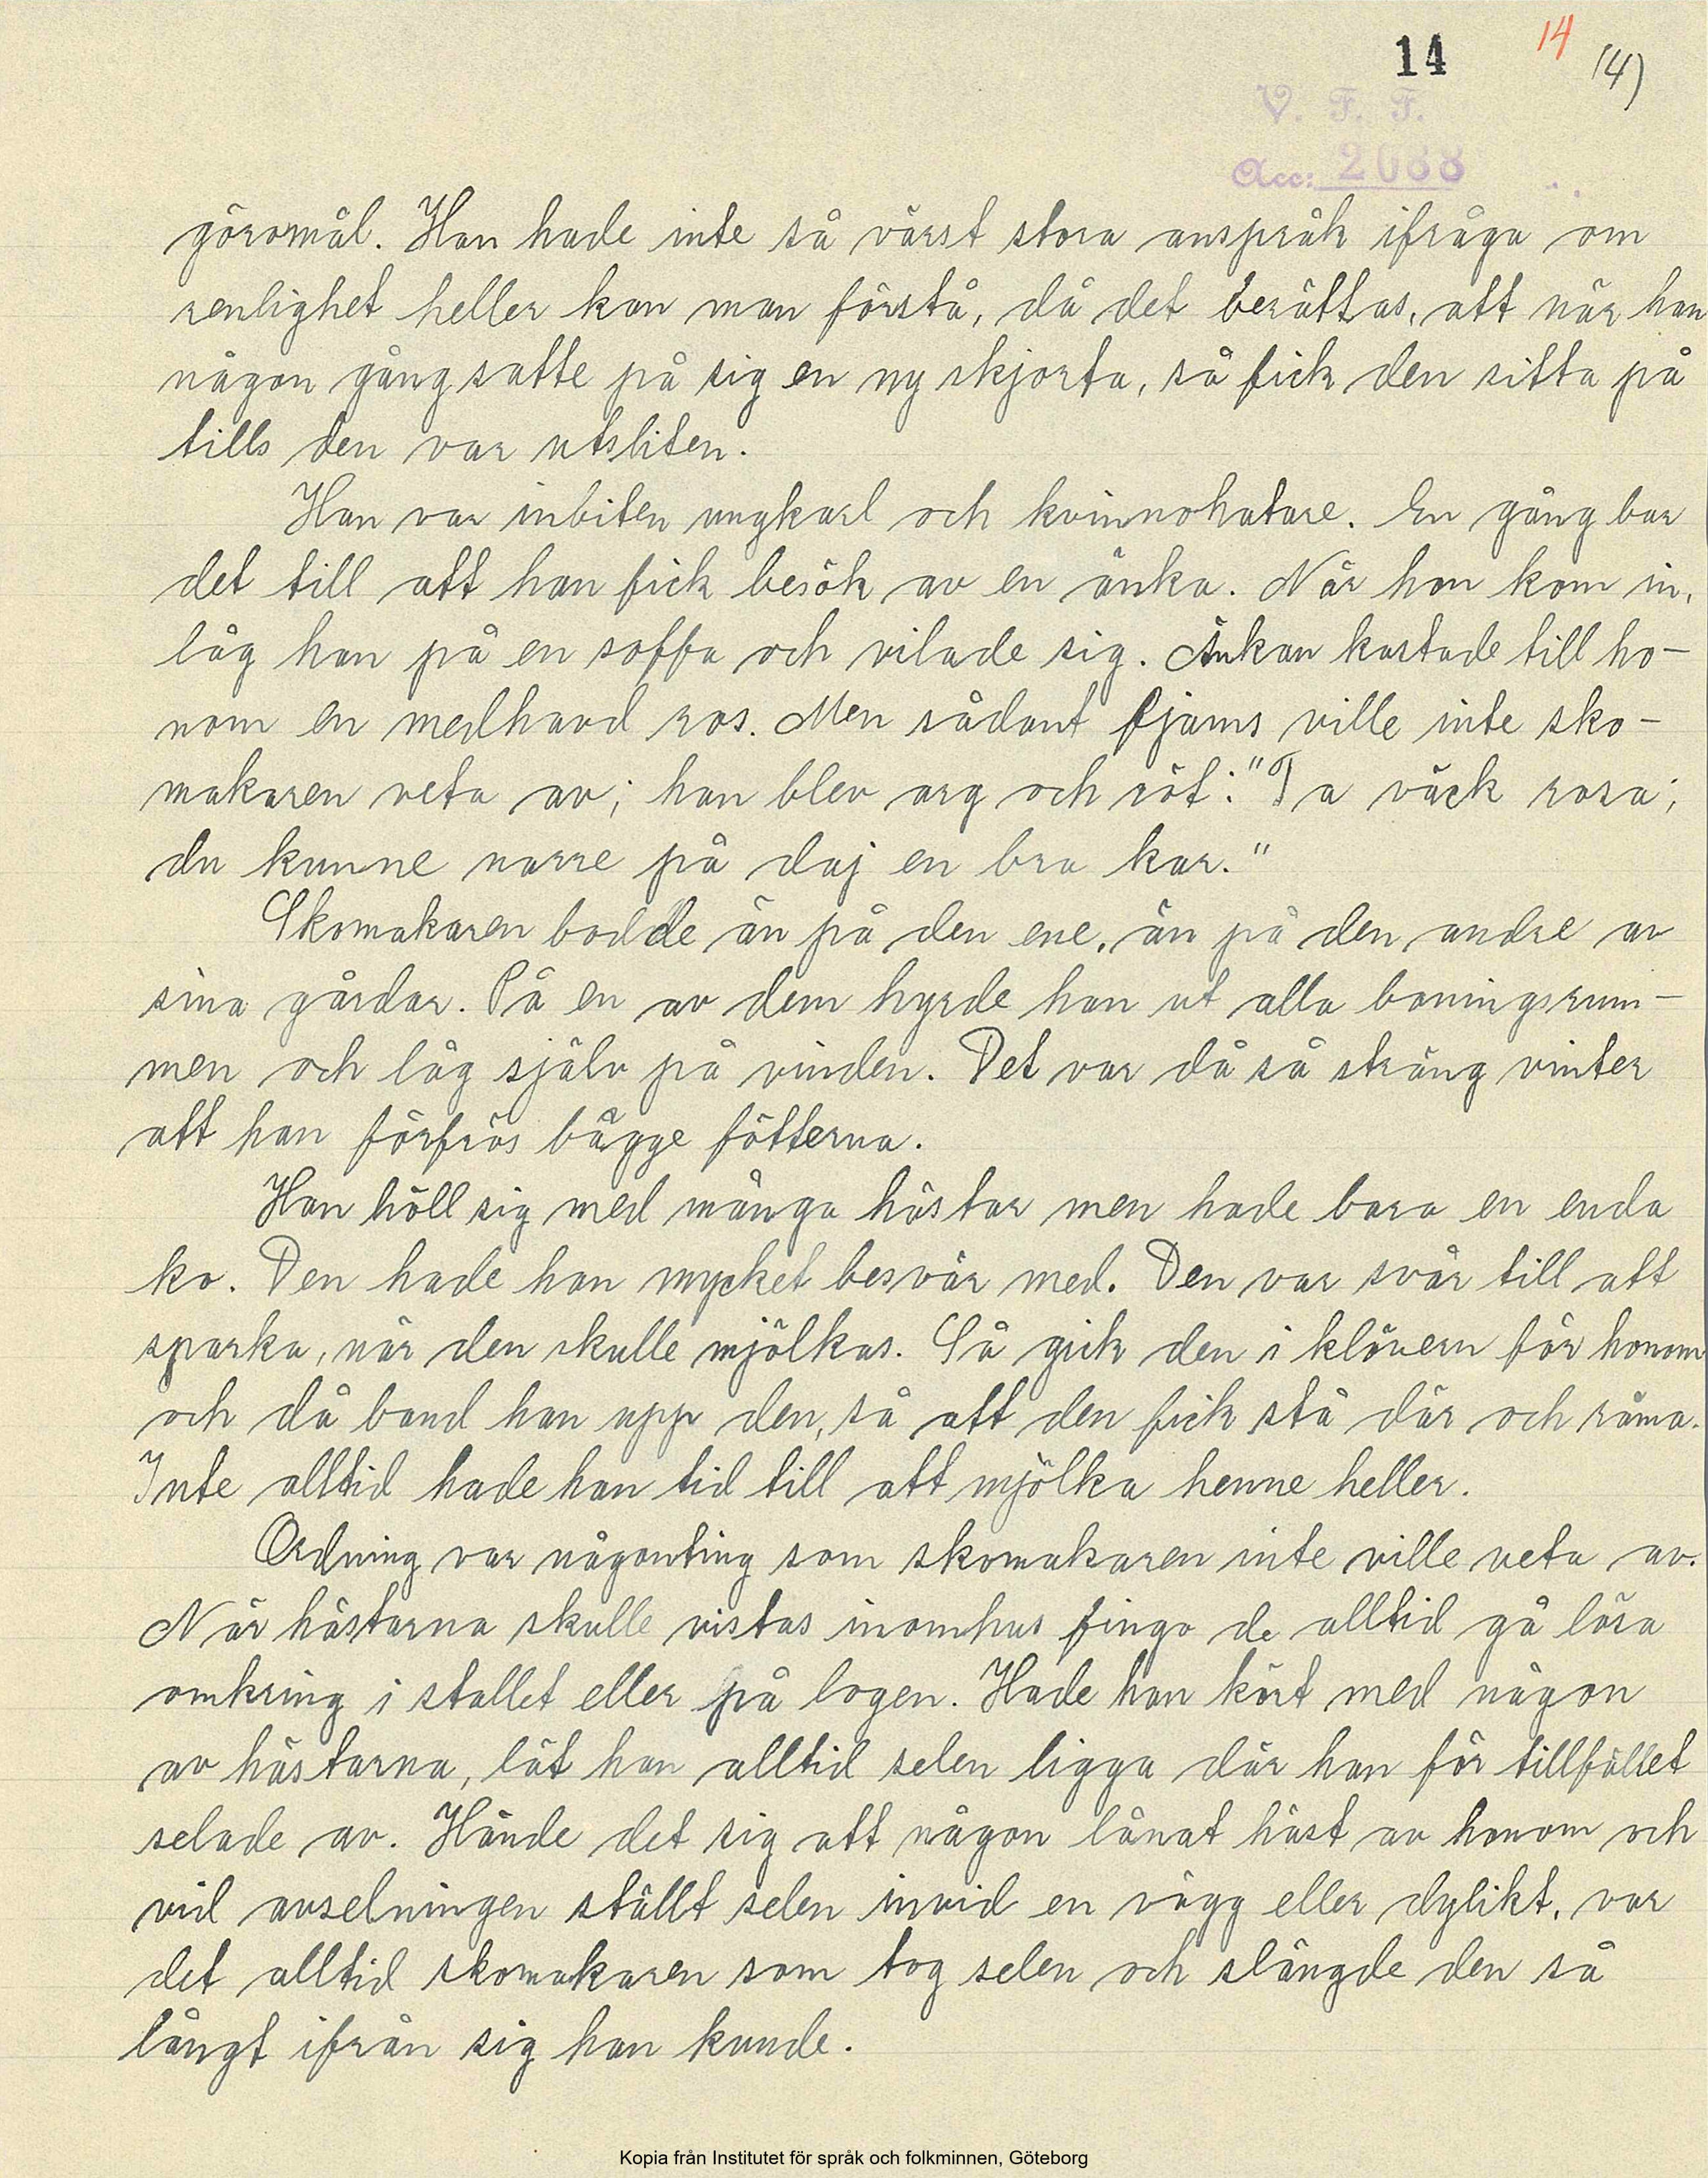 14 14 14)
V. F. F.
Acc: 2088
göromål. Han hade inte så värst stora anspråk ifråga om
renlighet heller kan man förstå, då det berättas, att när han
någon gång satte på sig en ny skjorta, så fick den sitta på
tills den var utsliten.
Han var inbiten ungkarl och kvinnohatare. En gång bar
det till att han fick besök av en änka. När hon kom in,
låg han på en soffa och vilade sig. Änkan kastade till ho-
nom en medhavd ros. Men sådant fjams ville inte sko-
makaren veta av; han blev arg och röt: "Ta väck rosa;
du kunne narre på daj en bra kar."
Skomakaren bodde än på den ene, än på den andre av
sina gårdar. På en av dem hyrde han ut alla boningsrum-
men och låg själv på vinden. Det var då så sträng vinter
att han förfrös bägge fötterna.
Han höll sig med många hästar men hade bara en enda
ko. Den hade han mycket besvär med. Den var svår till att
sparka, när den skulle mjölkas. Så gick den i klövern för honom
och då band han upp den, så att den fick stå där och råma.
Inte alltid hade han tid till att mjölka henne heller.
Ordning var någonting som skomakaren inte ville veta av.
När hästarna skulle vistas inomhus fingo de alltid gå lösa
omkring i stallet eller på logen. Hade han kört med någon
av hästarna, lät han alltid selen ligga där han för tillfället
selade av. Hände det sig att någon lånat häst av honom och
vid avselningen ställt selen invid en vägg eller dylikt, var
det alltid skomakaren som tog selen och slängde den så
långt ifrån sig han kunde.
Kopia från Institutet för språk och folkminnen, Göteborg